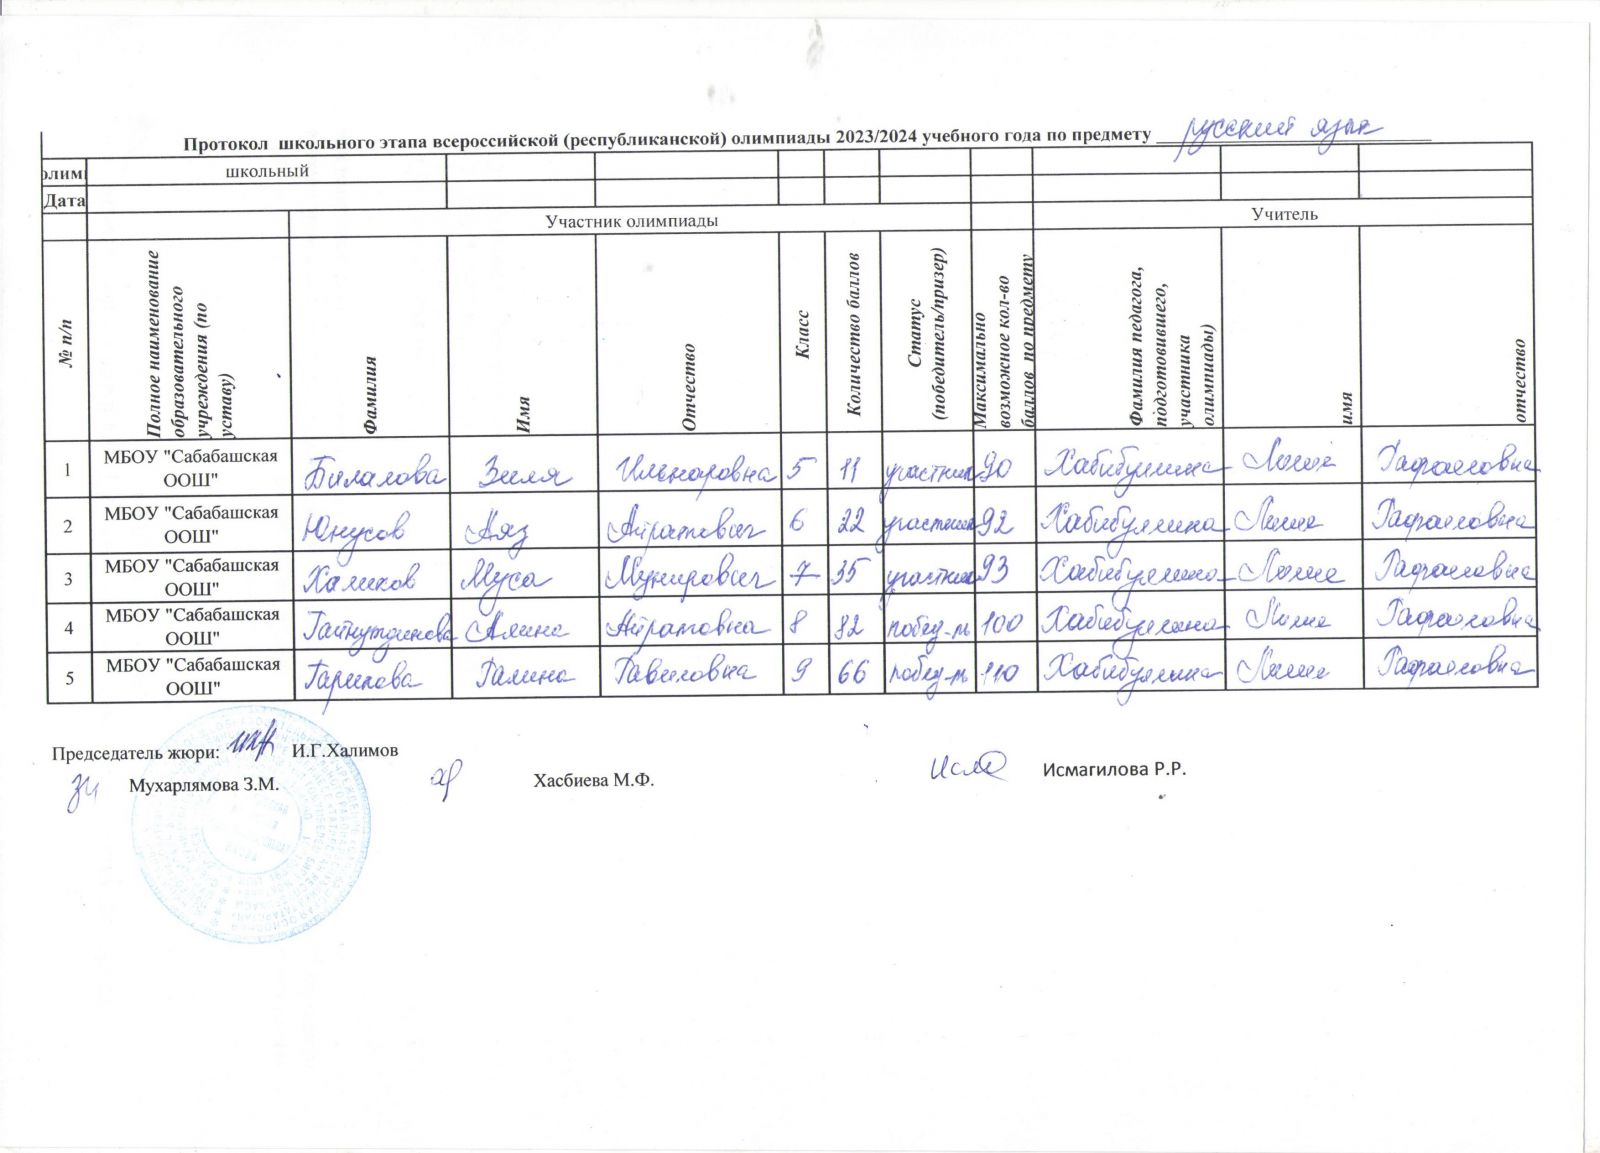 Протокол школьного этапа всероссийской (республиканской) олимпиады 2023/2024 учебного года по предмету русский язык
олимп школьный
Дата
Участник олимпиады Учитель
№ п/п Полное наименование образовательного учреждения (по уставу) Фамилия Имя Отчество Класс Количество баллов Статус (победитель/призер) Максимально возможное кол-во баллов по предмету Фамилия педагога, подготовившего, участника олимпиады) имя отчество
1 МБОУ "Сабабашская ООШ" Билалова Зиля Ильнаровна 5 11 участник 90 Хабибуллина Рафаиловна
2 МБОУ "Сабабашская ООШ" Юнусов Аяз Айратович 6 22 участник 92 Хабибуллина Рафаиловна
3 МБОУ "Сабабашская ООШ" Халиков Муса Мунирович 7 35 участник 93 Хабибуллина Рафаиловна
4 МБОУ "Сабабашская ООШ" Гайнутдинова Алина Айратовна 8 82 побед-ль 100 Хабибуллина Рафаиловна
5 МБОУ "Сабабашская ООШ" Гарипова Галина Равиловна 9 66 побед-ль 110 Хабибуллина Рафаиловна
Председатель жюри: И.Г.Халимов
Мухарлямова З.М. Хасбиева М.Ф. Исмагилова Р.Р.